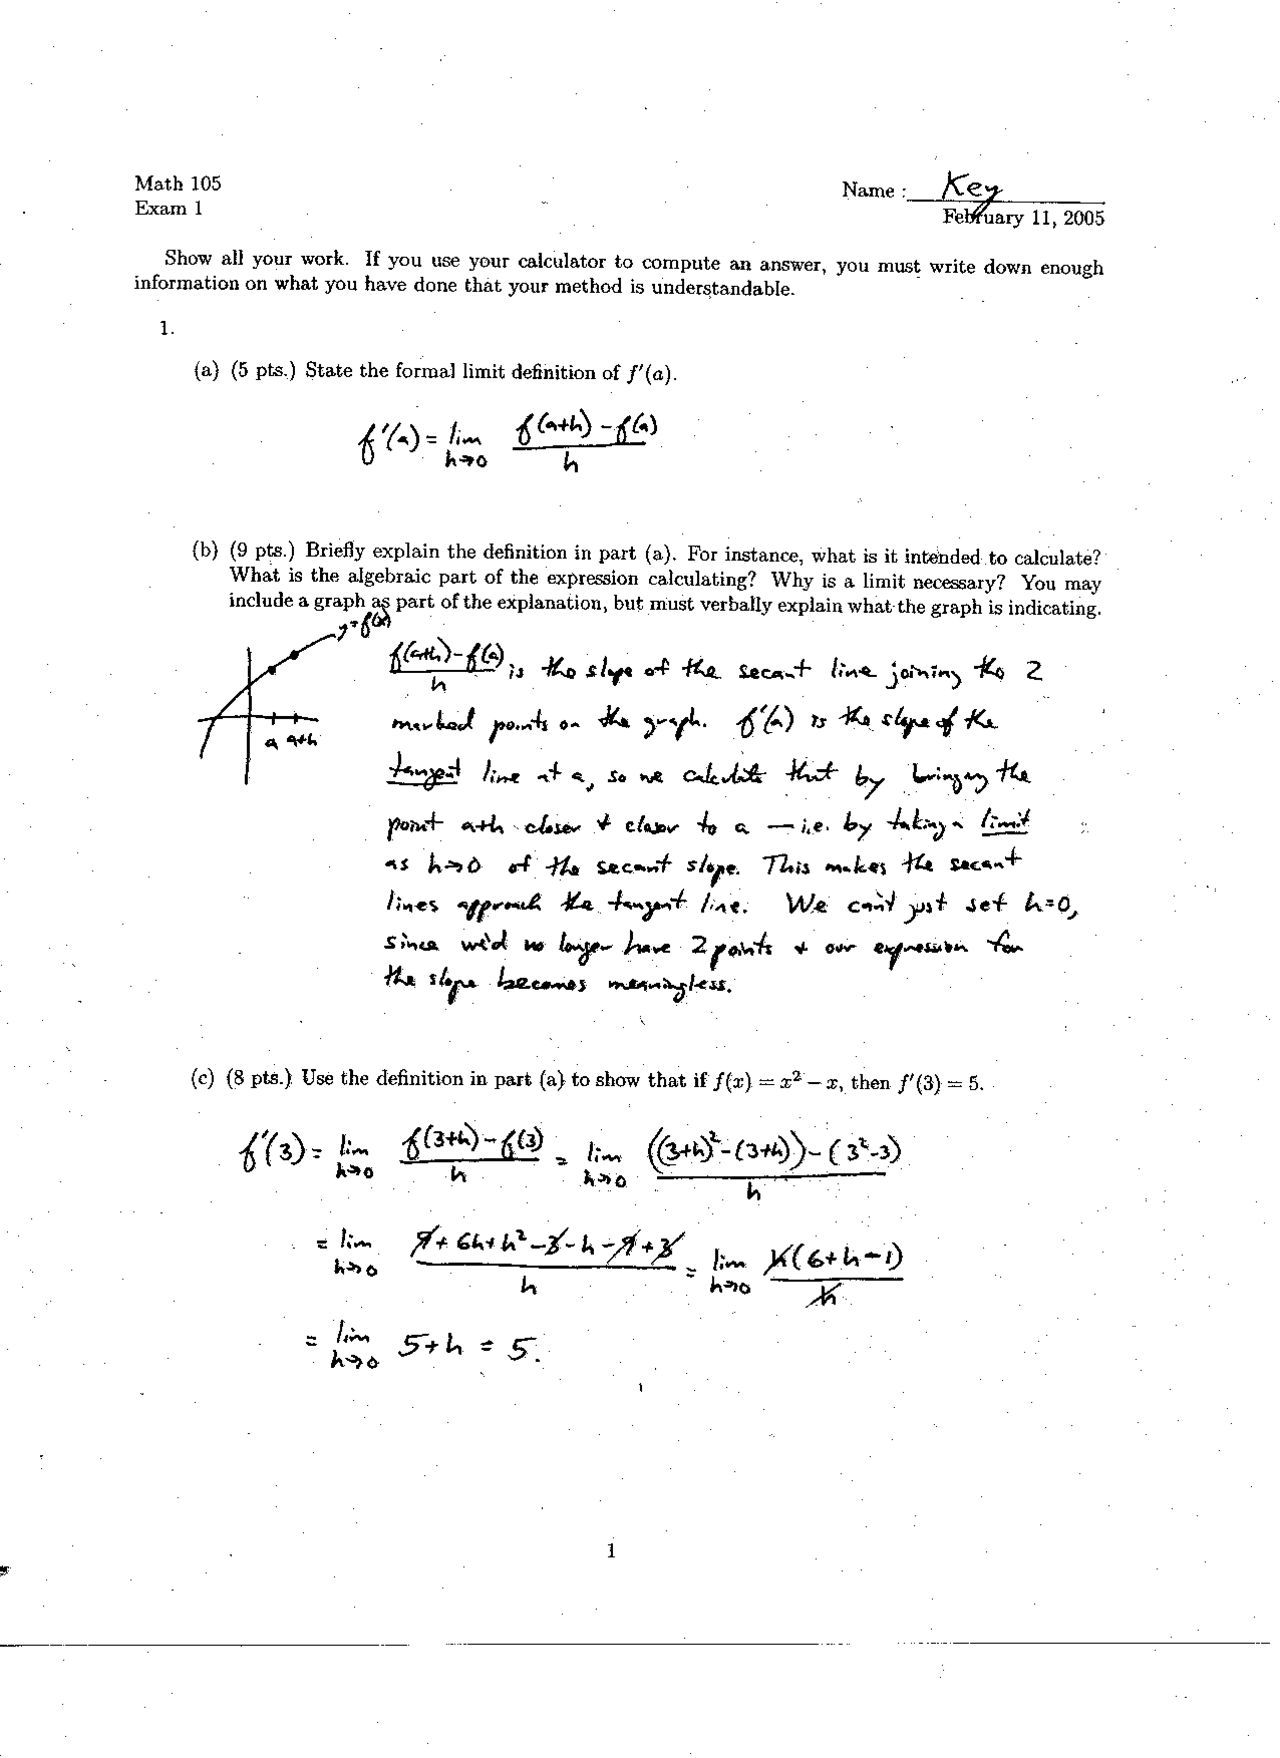 Math 105
Name : Key
Exam 1
February 11, 2005
Show all your work. If you use your calculator to compute an answer, you must write down enough
information on what you have done that your method is understandable.
1.
(a) (5 pts.) State the formal limit definition of f′(a).
f′(a) = lim h→0 (f(a+h) - f(a))/h
(b) (9 pts.) Briefly explain the definition in part (a). For instance, what is it intended to calculate?
What is the algebraic part of the expression calculating? Why is a limit necessary? You may
include a graph as part of the explanation, but must verbally explain what the graph is indicating.
y=f(x)
a a+h
(f(a+h) - f(a))/h is the slope of the secant line joining the 2
marked points on the graph. f′(a) is the slope of the
tangent line at a, so we calculate that by bringing the
point a+h closer + closer to a — i.e. by taking a limit
as h→0 of the secant slope. This makes the secant
lines approach the tangent line. We can't just set h=0,
since we'd no longer have 2 points + our expression for
the slope becomes meaningless.
(c) (8 pts.) Use the definition in part (a) to show that if f(x) = x² − x, then f′(3) = 5.
f′(3) = lim h→0 (f(3+h) - f(3))/h = lim h→0 (((3+h)² - (3+h)) - (3²-3))/h
= lim h→0 (9 + 6h + h² - 3 - h - 9 + 3)/h = lim h→0 h(6+h-1)/h
= lim h→0 5+h = 5.
1